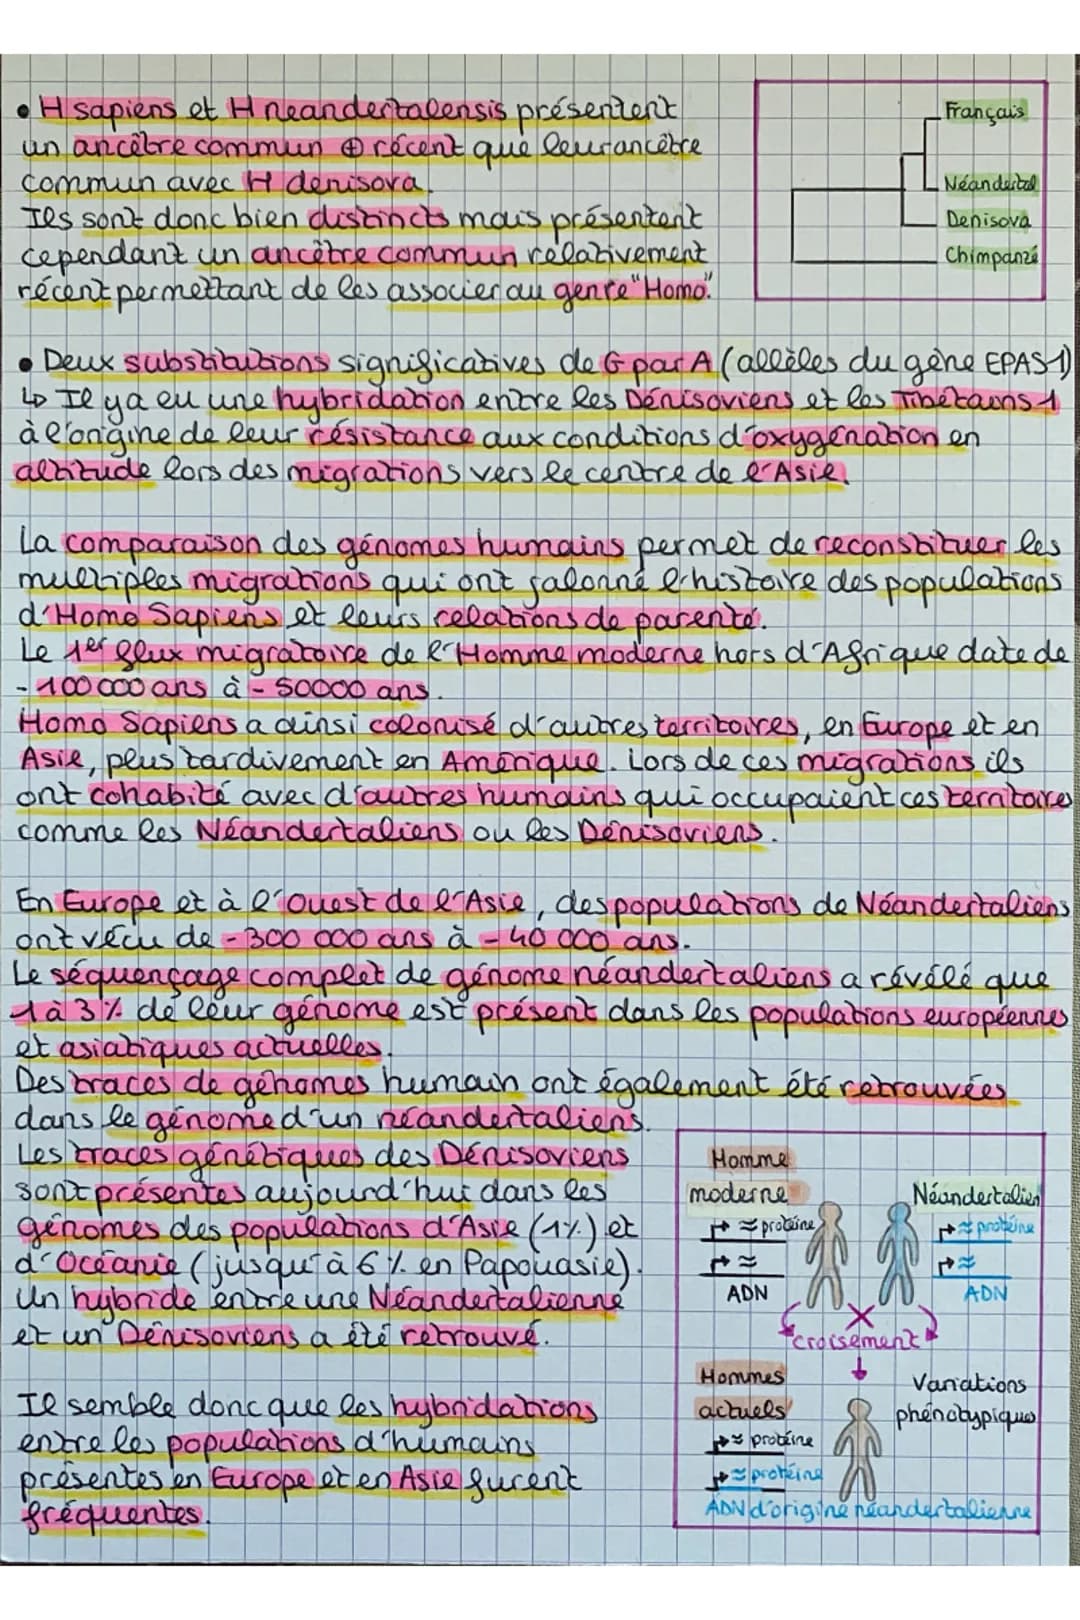 • H sapiens et H neandertalensis présentent
un ancêtre commun ⊕ récent que leur ancêtre
commun avec H denisova.
Ils sont donc bien distincts mais présentent
cependant un ancêtre commun relativement
récent permettant de les associer au genre "Homo".
Français
Néandertal
Denisova
Chimpanzé
• Deux substitutions significatives de G par A (allèles du gène EPAS1)
↳ Il y a eu une hybridation entre les Dénisoviens et les Tibétains 1
à l'origine de leur résistance aux conditions d'oxygénation en
altitude lors des migrations vers le centre de l'Asie.
La comparaison des génomes humains permet de reconstituer les
multiples migrations qui ont jalonné l'histoire des populations
d'Homo Sapiens et leurs relations de parenté.
Le 1er flux migratoire de l'Homme moderne hors d'Afrique date de
- 100 000 ans à - 50000 ans.
Homo Sapiens a ainsi colonisé d'autres territoires, en Europe et en
Asie, plus tardivement en Amérique. Lors de ces migrations ils
ont cohabité avec d'autres humains qui occupaient ces territoires
comme les Néandertaliens ou les Dénisoviens.
En Europe et à l'Ouest de l'Asie, des populations de Néandertaliens
ont vécu de - 300 000 ans à - 40 000 ans.
Le séquençage complet de génome néandertaliens a révélé que
1 à 3 % de leur génome est présent dans les populations européennes
et asiatiques actuelles.
Des traces de génomes humain ont également été retrouvées
dans le génome d'un néandertaliens.
Les traces génétiques des Dénisoviens
sont présentes aujourd'hui dans les
génomes des populations d'Asie (1%) et
d'Océanie (jusqu'à 6 % en Papouasie).
Un hybride entre une Néandertalienne
et un Dénisoviens a été retrouvé.
Il semble donc que les hybridations
entre les populations d'humains
présentes en Europe et en Asie furent
fréquentes.
Homme
moderne
≈ protéine
≈
ADN
Néandertalien
≈ protéine
≈
ADN
croisement
Hommes
actuels
≈ protéine
≈ protéine
ADN d'origine néandertalienne
Variations
phénotypiques